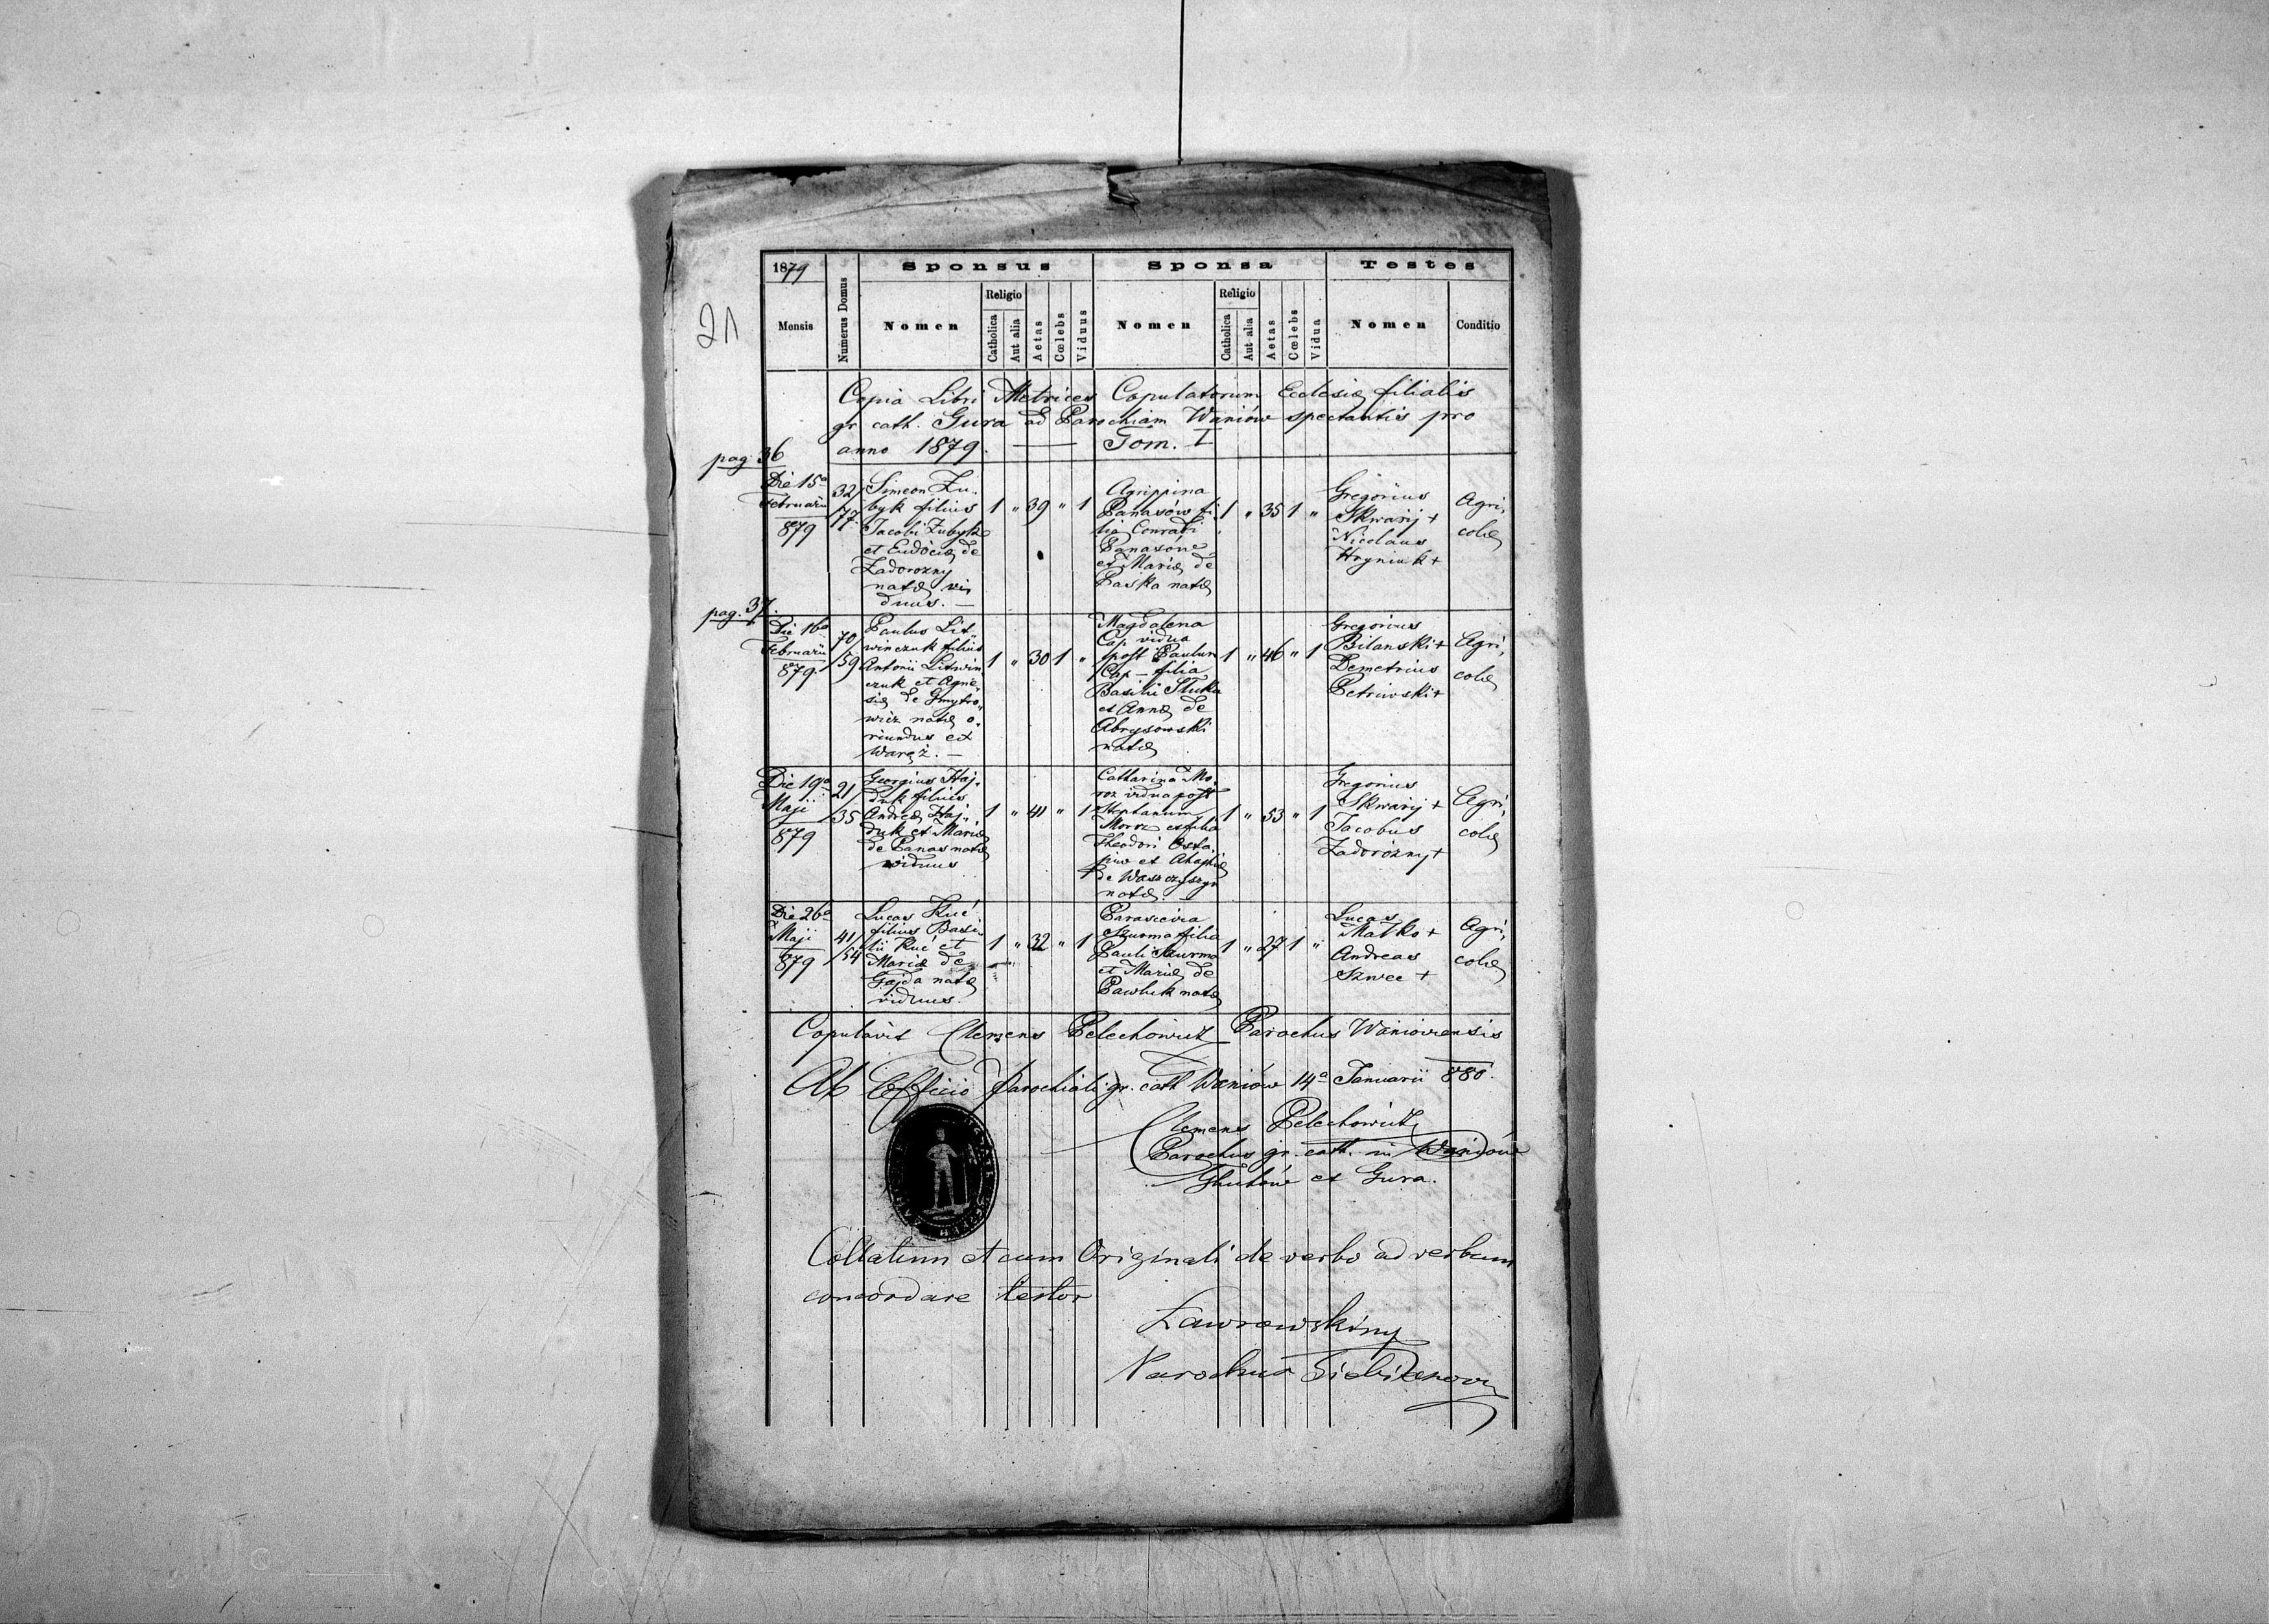 21
1879
Mensis
Numerus Domus
Sponsus
Nomen
Religio
Catholica
Aut alia
Aetas
Cœlebs
Viduus
Sponsa
Nomen
Religio
Catholica
Aut alia
Aetas
Cœlebs
Vidua
Testes
Nomen
Conditio
Copia Libri Metrices Copulatorum Ecclesiæ filialis
gr. cath. Gura ad Parochiam Waniów spectantis pro
anno 1879. — Tom. I
pag. 36
Die 15a
Februarii
879
32/
77.
Simeon Zu-
byk filius
Jacobi Zubyk
et Eudociæ de
Zadorozny
natæ vi,
duus. —
1 " 39 " 1
Agrippina
Panasów fi-
lia Conradi
Panasów
et Mariæ de
Paska natæ
1 " 35 1 "
Gregorius
Skwarij +
Nicolaus
Hryniuk +
Agri,
colæ
pag. 37.
Die 16a
Februarii
879.
70/
59
Paulus Lit-
winczuk filius
Antonii Litwin
czuk et Agne,
siæ de Gmytro,
wicz natæ o,
riundus ex
Waręż. —
1 " 30 1 "
Magdalena
Cap. vidua
post Paulum
Cap — filia
Basilii Stuka
et Annæ de
Abrysowski
natæ
1 " 46 " 1
Gregorius
Bilanski +
Demetrius
Petriwski +
Agri,
colæ
Die 19a
Maji
879
21/
35
Georgius Haj-
duk filius
Andreæ Haj-
duk et Mariæ
de Panas natæ
viduus
1 " 41 " 1
Catharina Mo,
roz vidua post
Stephanum
Moroz et filia
Theodori Osta,
piw et Ahaphiæ
de Waszczyszyn
natæ
1 " 53 " 1
Gregorius
Skwarij +
Jacobus
Zadorozny +
Agri,
colæ
Die 26a
Maji
879
41/
54
Lucas Kuć
filius Basi-
lii Kuć et
Mariæ de
Gajda natæ
viduus.
1 " 32 " 1
Parascevia
Szurma filia
Pauli Szurma
et Mariæ de
Pawluk natæ
1 " 27 1 "
Lucas
Matko +
Andreas
Szwec +
Agri,
colæ
Copulavit Clemens Pelechowicz Parochus Waniowensis
Ab Officio parochiali gr. cath Waniów 14a Januarii 880.
Clemens Pelechowicz
Parochus gr. cath. in Waniów
Chutów et Gura.
Collatum et cum Originali de verbo ad verbum
concordare testor
Parochus